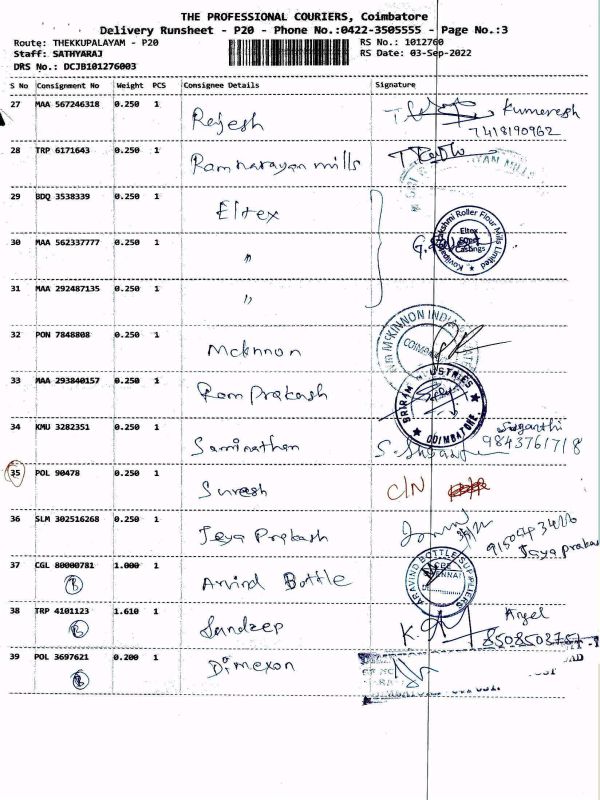 THE PROFESSIONAL COURIERS, Coimbatore
Delivery Runsheet - P20 - Phone No.:0422-3505555 - Page No.:3
Route: THEKKUPALAYAM - P20 RS No.: 1012760
Staff: SATHYARAJ RS Date: 03-Sep-2022
DRS No.: DCJB101276003
S No Consignment No Weight PCS Consignee Details Signature
27 MAA 567246318 0.250 1 Rajesh Kumaresh
7418190962
28 TRP 6171643 0.250 1 Ramnarayan mills
29 BDQ 3538339 0.250 1 Eltex
Lakshmi Roller Flour Mills Limited
Eltex
Castings
30 MAA 562337777 0.250 1 "
31 MAA 292487135 0.250 1 "
MCKINNON INDIA
32 PON 7848808 0.250 1 Mcknnon
33 MAA 293840157 0.250 1 Ram Prakash
SRIRAM INDUSTRIES
COIMBATORE
34 KMU 3282351 0.250 1 Saminathan Suganthi
9843761718
35 POL 90478 0.250 1 Suresh C/N
36 SLM 302516268 0.250 1 Jeya Prakash
Jaya prakas
37 CGL 80000781 1.000 1 Arvind Bottle
B
ARAVIND BOTTLE SUPPLIERS
38 TRP 4101123 1.610 1 Sandeep Angel
B
39 POL 3697621 0.200 1 Dimexon
B